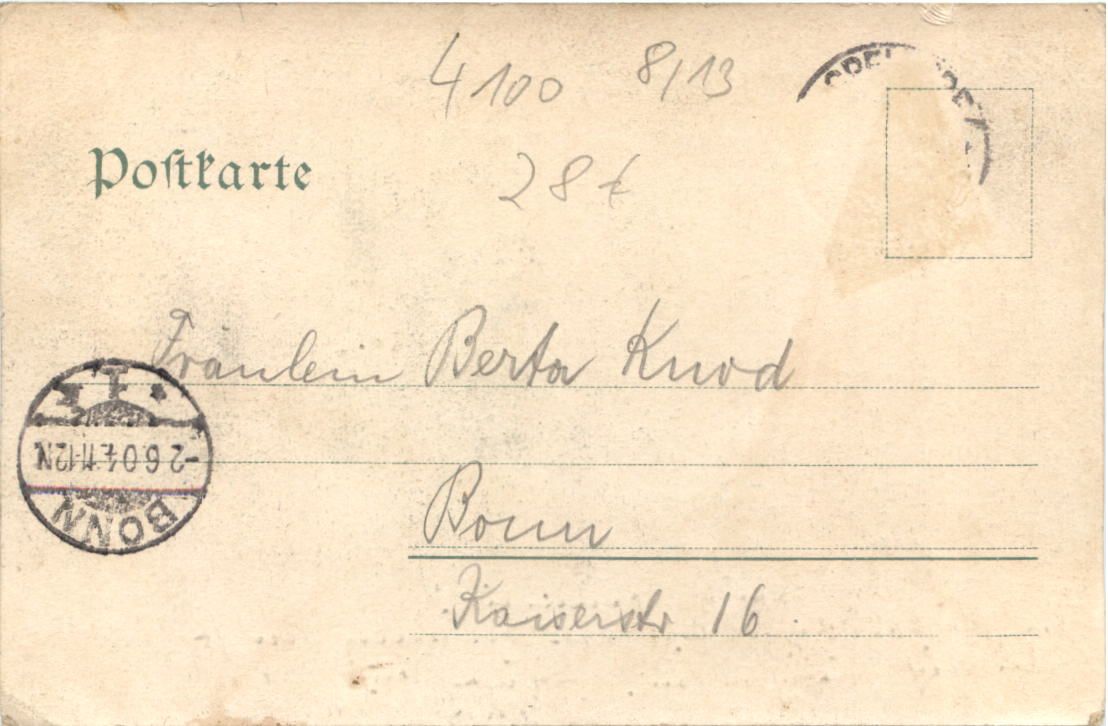 4100 8/13
Postkarte
28 €
Fräulein Berta Knod
-2.6.04.11-12N.
BONN
Bonn
Kaiserstr 16.